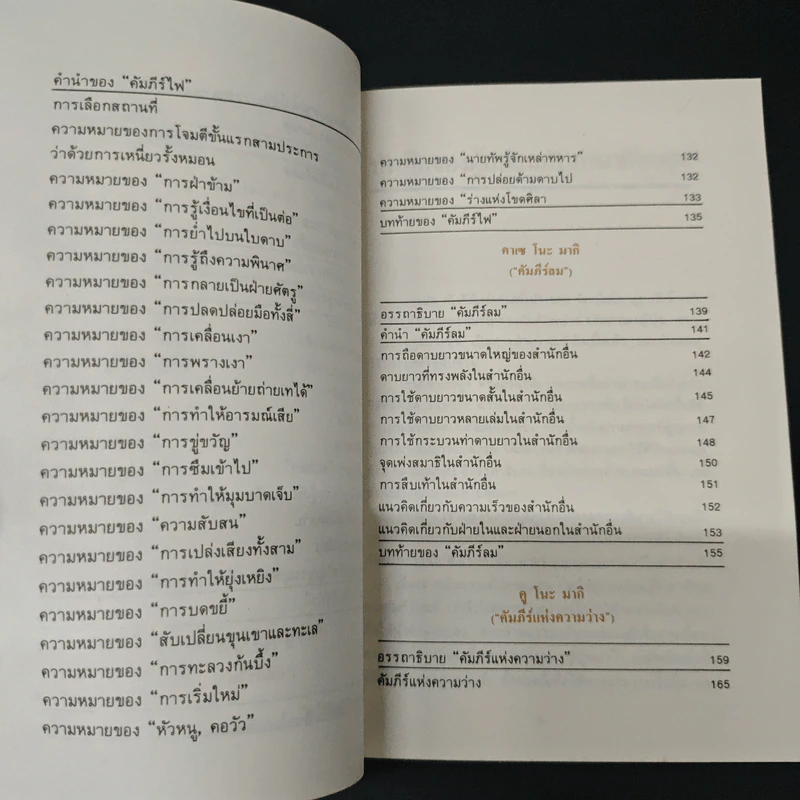 คำนำของ “คัมภีร์ไฟ”
การเลือกสถานที่
ความหมายของการโจมตีขั้นแรกสามประการ
ว่าด้วยการเหนี่ยวรั้งหมอน
ความหมายของ “การฝ่าข้าม”
ความหมายของ “การรู้เงื่อนไขที่เป็นต่อ”
ความหมายของ “การย่ำไปบนใบดาบ”
ความหมายของ “การรู้ถึงความพินาศ”
ความหมายของ “การกลายเป็นฝ่ายศัตรู”
ความหมายของ “การปลดปล่อยมือทั้งสี่”
ความหมายของ “การเคลื่อนเงา”
ความหมายของ “การพรางเงา”
ความหมายของ “การเคลื่อนย้ายถ่ายเทได้”
ความหมายของ “การทำให้อารมณ์เสีย”
ความหมายของ “การขู่ขวัญ”
ความหมายของ “การซึมเข้าไป”
ความหมายของ “การทำให้มุมบาดเจ็บ”
ความหมายของ “ความสับสน”
ความหมายของ “การเปล่งเสียงทั้งสาม”
ความหมายของ “การทำให้ยุ่งเหยิง”
ความหมายของ “การบดขยี้”
ความหมายของ “สับเปลี่ยนขุนเขาและทะเล”
ความหมายของ “การทะลวงก้นบึ้ง”
ความหมายของ “การเริ่มใหม่”
ความหมายของ “หัวหนู, คอวัว”
ความหมายของ “นายทัพรู้จักเหล่าทหาร” 132
ความหมายของ “การปล่อยด้ามดาบไป 132
ความหมายของ “ร่างแห่งโขดศิลา 133
บทท้ายของ “คัมภีร์ไฟ” 135
คาเซ โนะ มากิ
(“คัมภีร์ลม”)
อรรถาธิบาย “คัมภีร์ลม” 139
คำนำ “คัมภีร์ลม” 141
การถือดาบยาวขนาดใหญ่ของสำนักอื่น 142
ดาบยาวที่ทรงพลังในสำนักอื่น 144
การใช้ดาบยาวขนาดสั้นในสำนักอื่น 145
การใช้ดาบยาวหลายเล่มในสำนักอื่น 147
การใช้กระบวนท่าดาบยาวในสำนักอื่น 148
จุดเพ่งสมาธิในสำนักอื่น 150
การสืบเท้าในสำนักอื่น 151
แนวคิดเกี่ยวกับความเร็วของสำนักอื่น 152
แนวคิดเกี่ยวกับฝ่ายในและฝ่ายนอกในสำนักอื่น 153
บทท้ายของ “คัมภีร์ลม” 155
คู โนะ มากิ
(“คัมภีร์แห่งความว่าง”)
อรรถาธิบาย “คัมภีร์แห่งความว่าง” 159
คัมภีร์แห่งความว่าง 165